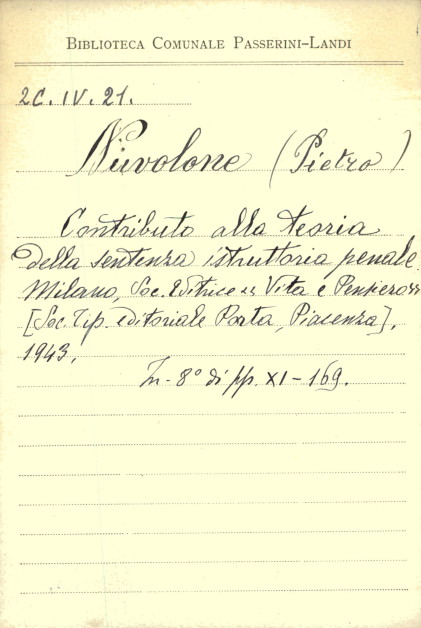 BIBLIOTECA COMUNALE PASSERINI-LANDI
2C. IV. 21.
Nuvolone (Pietro)
Contributo alla teoria
della sentenza istruttoria penale.
Milano, Soc. Editrice "Vita e Pensiero"
[Soc. Tip. editoriale Porta, Piacenza],
1943.
In-8° di pp. XI-169.